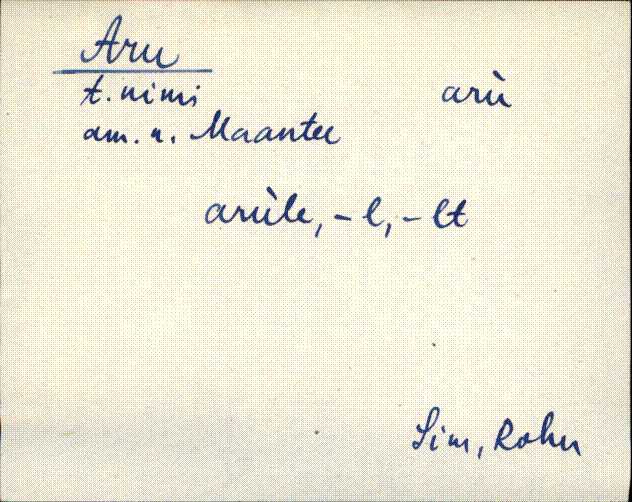 Aru
t. nimi arù
am. n. Maantee
arùle, -l, -lt
Sim, Rohu